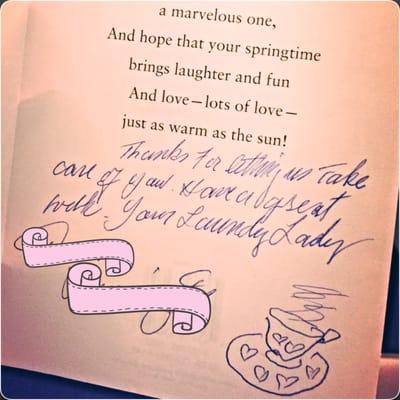 a marvelous one,
And hope that your springtime
brings laughter and fun
And love—lots of love—
just as warm as the sun!
Thanks for letting us Take
care of you. Have a great
week. Your Laundry Lady